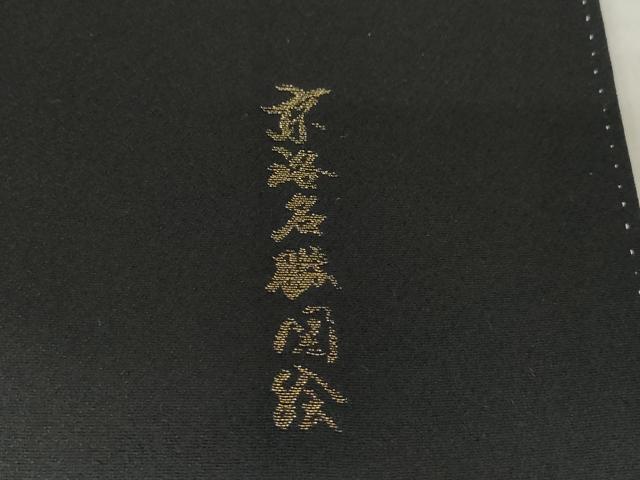 京洛名勝図絵